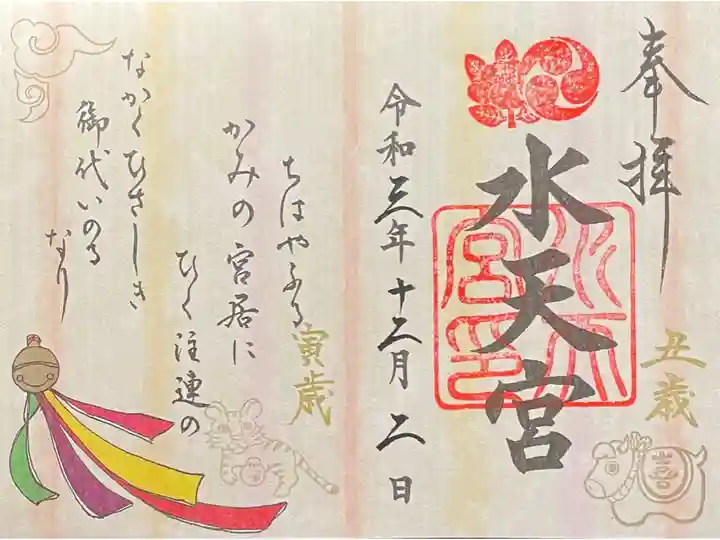 奉拝
水天宮
水天宮印
丑歳
令和三年十二月二日
寅歳
ちはやふる
かみの宮居に
ひく注連の
なかくひさしき
御代いのる
なり
喜